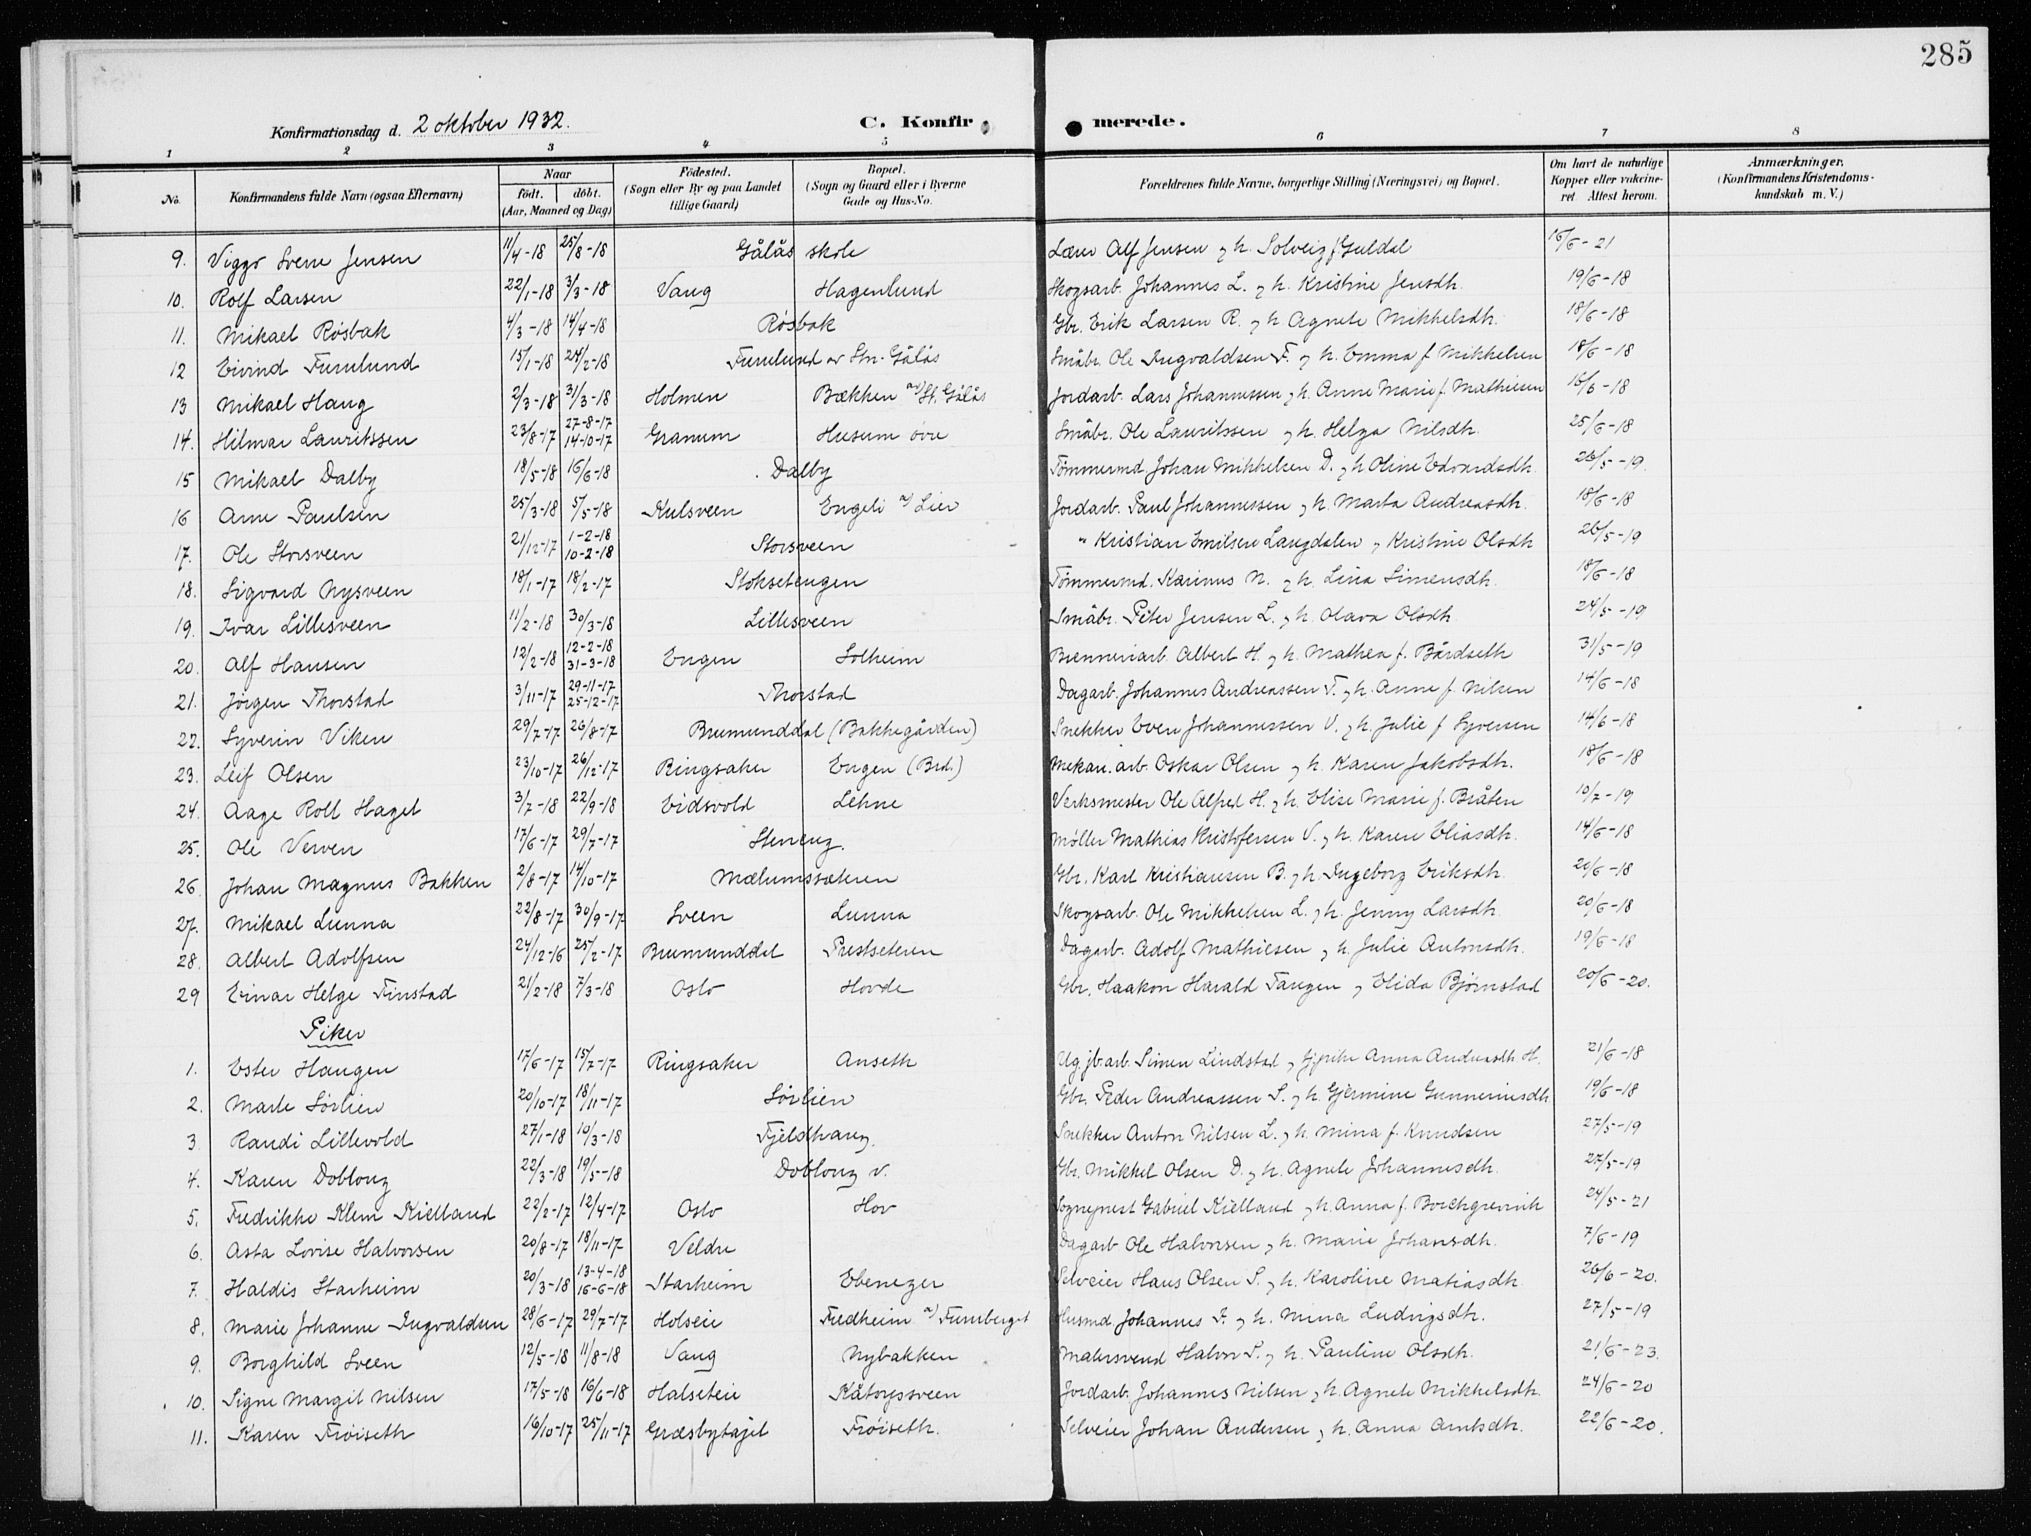 285
Konfirmationsdag d. 2 oktober 1932. C. Konfirmerede.
1 2 3 4 5 6 7 8
No. Konfirmandens fulde Navn (ogsaa Efternavn) Naar født. døbt. (Aar, Maaned og Dag) Fødested. (Sogn eller By og paa Landet tillige Gaard) Bopæl. (Sogn og Gaard eller i Byerne Gade og Hus-No. Forældrenes fulde Navne, borgerlige Stilling (Næringsvei) og Bopæl. Om havt de naturlige Kopper eller vakcineret. Attest herom. Anmærkninger. (Konfirmandens Kristendomskundskab m. V.)
9. Viggo Sverre Jensen 11/4-18 25/8-18 Gålås skole Lærer Alf Jensen og h. Solveig f. Guldal 16/6-21
10. Rolf Larsen 22/1-18 3/3-18 Vang Hagenlund Skogsarb. Johannes L. og h. Kristine Jensdh. 19/6-18
11. Mikael Røsbak 4/3-18 14/4-18 Røsbak Gbr. Erik Larsen R. og h Agnete Mikkelsdh. 18/6-18
12 Eivind Furulund 15/1-18 24/2-18 Furulund av Stn. Gålås Småbr. Ole Ingvaldsen F. og h. Emma f. Mikkelsen 18/6-18
13 Mikael Haug 2/3-18 31/3-18 Holmen Bækken av St. Gålås Jordarb. Lars Johannessen og h. Anne Marie f. Mathiesen 15/6-18
14. Hilmar Lauritssen 23/8-17 27-8-17 14-10-17 Granum Husum øvre Småbr. Ole Lauritssen og h. Helga Nilsdh. 25/6-18
15 Mikael Dalby 18/5-18 16/6-18 Dalby Tømmermd. Johan Mikkelsen D. og h Oline Edvardsdh. 26/5-19.
16 Arne Paulsen 25/3-18 5/5-18 Kulsveen Engeli a/ Lier Jordarb. Paul Johannessen og h. Marta Andreasdh. 18/6-18
17. Ole Storsveen 21/12-17 1-2-18 10-2-18 Storsveen " Kristian Emilsen Langdalen og Kristine Olsdh 26/5-19
18. Sigvard Nysveen 18/1-17 18/2-17 Stoksetengen Tømmermd. Karinus N. og h. Lina Simensdh. 18/6-18
19. Ivar Lillesveen 11/2-18 30/3-18 Lillesveen Småbr. Peter Jensen L. og h. Olava Olsdh. 24/5-19
20. Alf Hansen 12/2-18 12-2-18 31-3-18 Engen Solheim Brenneriarb. Albert H. og h. Mathea f. Bårdseth 31/5-19
21. Jørgen Thorstad 3/11-17 29-11-17 25-12-17 Thorstad Dagarb. Johannes Andreassen T. og h. Anne f. Nilsen 14/6-18
22. Syverin Viken 29/7-17 26/8-17 Brumunddal (Bakkegården) Snekker Even Johannessen V. og h. Julie f Syversen 14/6-18
23. Leif Olsen 23/10-17 26/12-17 Ringsaker Engen (Brd.) Mekan. arb. Oskar Olsen og h. Karen Jakobsdh. 18/6-18
24. Aage Rolf Haget 3/7-18 22/9-18 Eidsvold Lehne Verksmester Ole Alfred H. og h. Elise Marie f. Bråten 10/7-19
25. Ole Verven 17/6-17 29/7-17 Steneng. Møller Mathias Kristofersen V. og h. Karen Eliasdh. 14/6-18
26 Johan Magnus Bakken 2/8-17 14/10-17 Mælumssæteren Gbr. Karl Kristiansen B. og h. Ingeborg Eriksdh. 20/6-18
27. Mikael Lunna 22/8-17 30/9-17 Sveen Lunna Skogsarb. Ole Mikkelsen L. og h. Jenny Larsdh. 20/6-18
28. Albert Adolfsen 24/12-16 25/2-17 Brumunddal Prestseteren Dagarb. Adolf Mathiesen og h. Julie Antonsdh. 19/6-18
29 Einar Helge Finstad 21/2-18 7/3-18 Oslo Hovde Gbr. Haakon Harald Tangen og Elida Bjørnstad 20/6-20.
Piker
1. Ester Haugen 17/6-17 15/7-17 Ringsaker Anseth Ug. jb.arb. Simen Lindstad og pike Anna Andreasdh H. 21/6-18
2. Marte Sørlien 20/10-17 18/11-17 Sørlien Gbr. Peder Andreassen S. og h. Gjermine Gunneriusdh 19/6-18
3 Randi Lillevold 27/1-18 10/3-18 Fjeldhaug. Snekker Anton Nilsen L. og h. Mina f. Knudsen 27/5-19
4. Karen Doblong 22/3-18 19/5-18 Doblong v. Gbr. Mikkel Olsen D. og h. Agnete Johannesdh. 27/5-19
5. Fredrikke Klem Kielland 22/2-17 12/4-17 Oslo Hov Sogneprest Gabriel Kielland og h. Anna f. Borchgrevink 24/5-21
6. Asta Lovise Halvorsen 20/8-17 18/11-17 Veldre Dagarb Ole Halvorsen og h. Marie Johansdh. 7/6-19
7. Haldis Starheim 20/3-18 13-4-18 16-6-18 Starheim Ebenezer Selveier Hans Olsen S. og h. Karoline Matiasdh. 26/6-20.
8. Marie Johanne Ingvaldsen 28/6-17 29/7-17 Holseie Fredheim a/ Furuberget Husmd Johannes F. og h. Mina Ludvigsdh. 27/5-19
9. Borghild Sveen 12/5-18 11/8-18 Vang Nybakken Malersvend Halvor S. og h. Pauline Olsdh. 21/6-23.
10. Signe Margit Nilsen 17/5-18 16/6-18 Halseteie Kåtorpsveen Jordarb. Johannes Nilsen og h. Agnete Mikkelsdh. 24/6-20
11. Karen Frøiseth 16/10-17 25/11-17 Græsbytajet Frøiseth. Selveier Johan Andersen og h. Anna Arntsdh. 22/6-20.